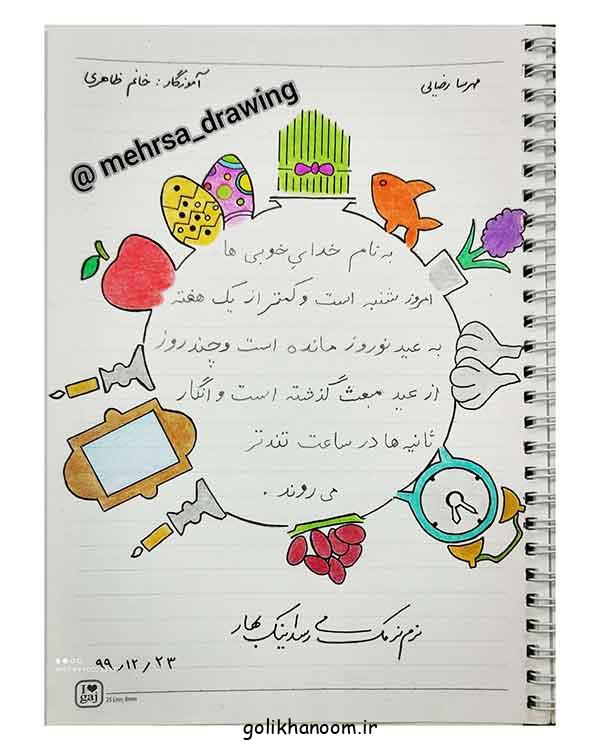 مهرسا رضایی
آموزگار : خانم طاهری
@ mehrsa_drawing
به نام خدای خوبی ها
امروز شنبه است و کمتر از یک هفته
به عید نوروز مانده است و چند روز
از عید مبعث گذشته است و انگار
ثانیه ها در ساعت تندتر
می روند .
نرم نرمک می رسد اینک بهار
۹۹/۱۲/۲۳
I gaj
25 Line, 8mm
golikhanoom.ir